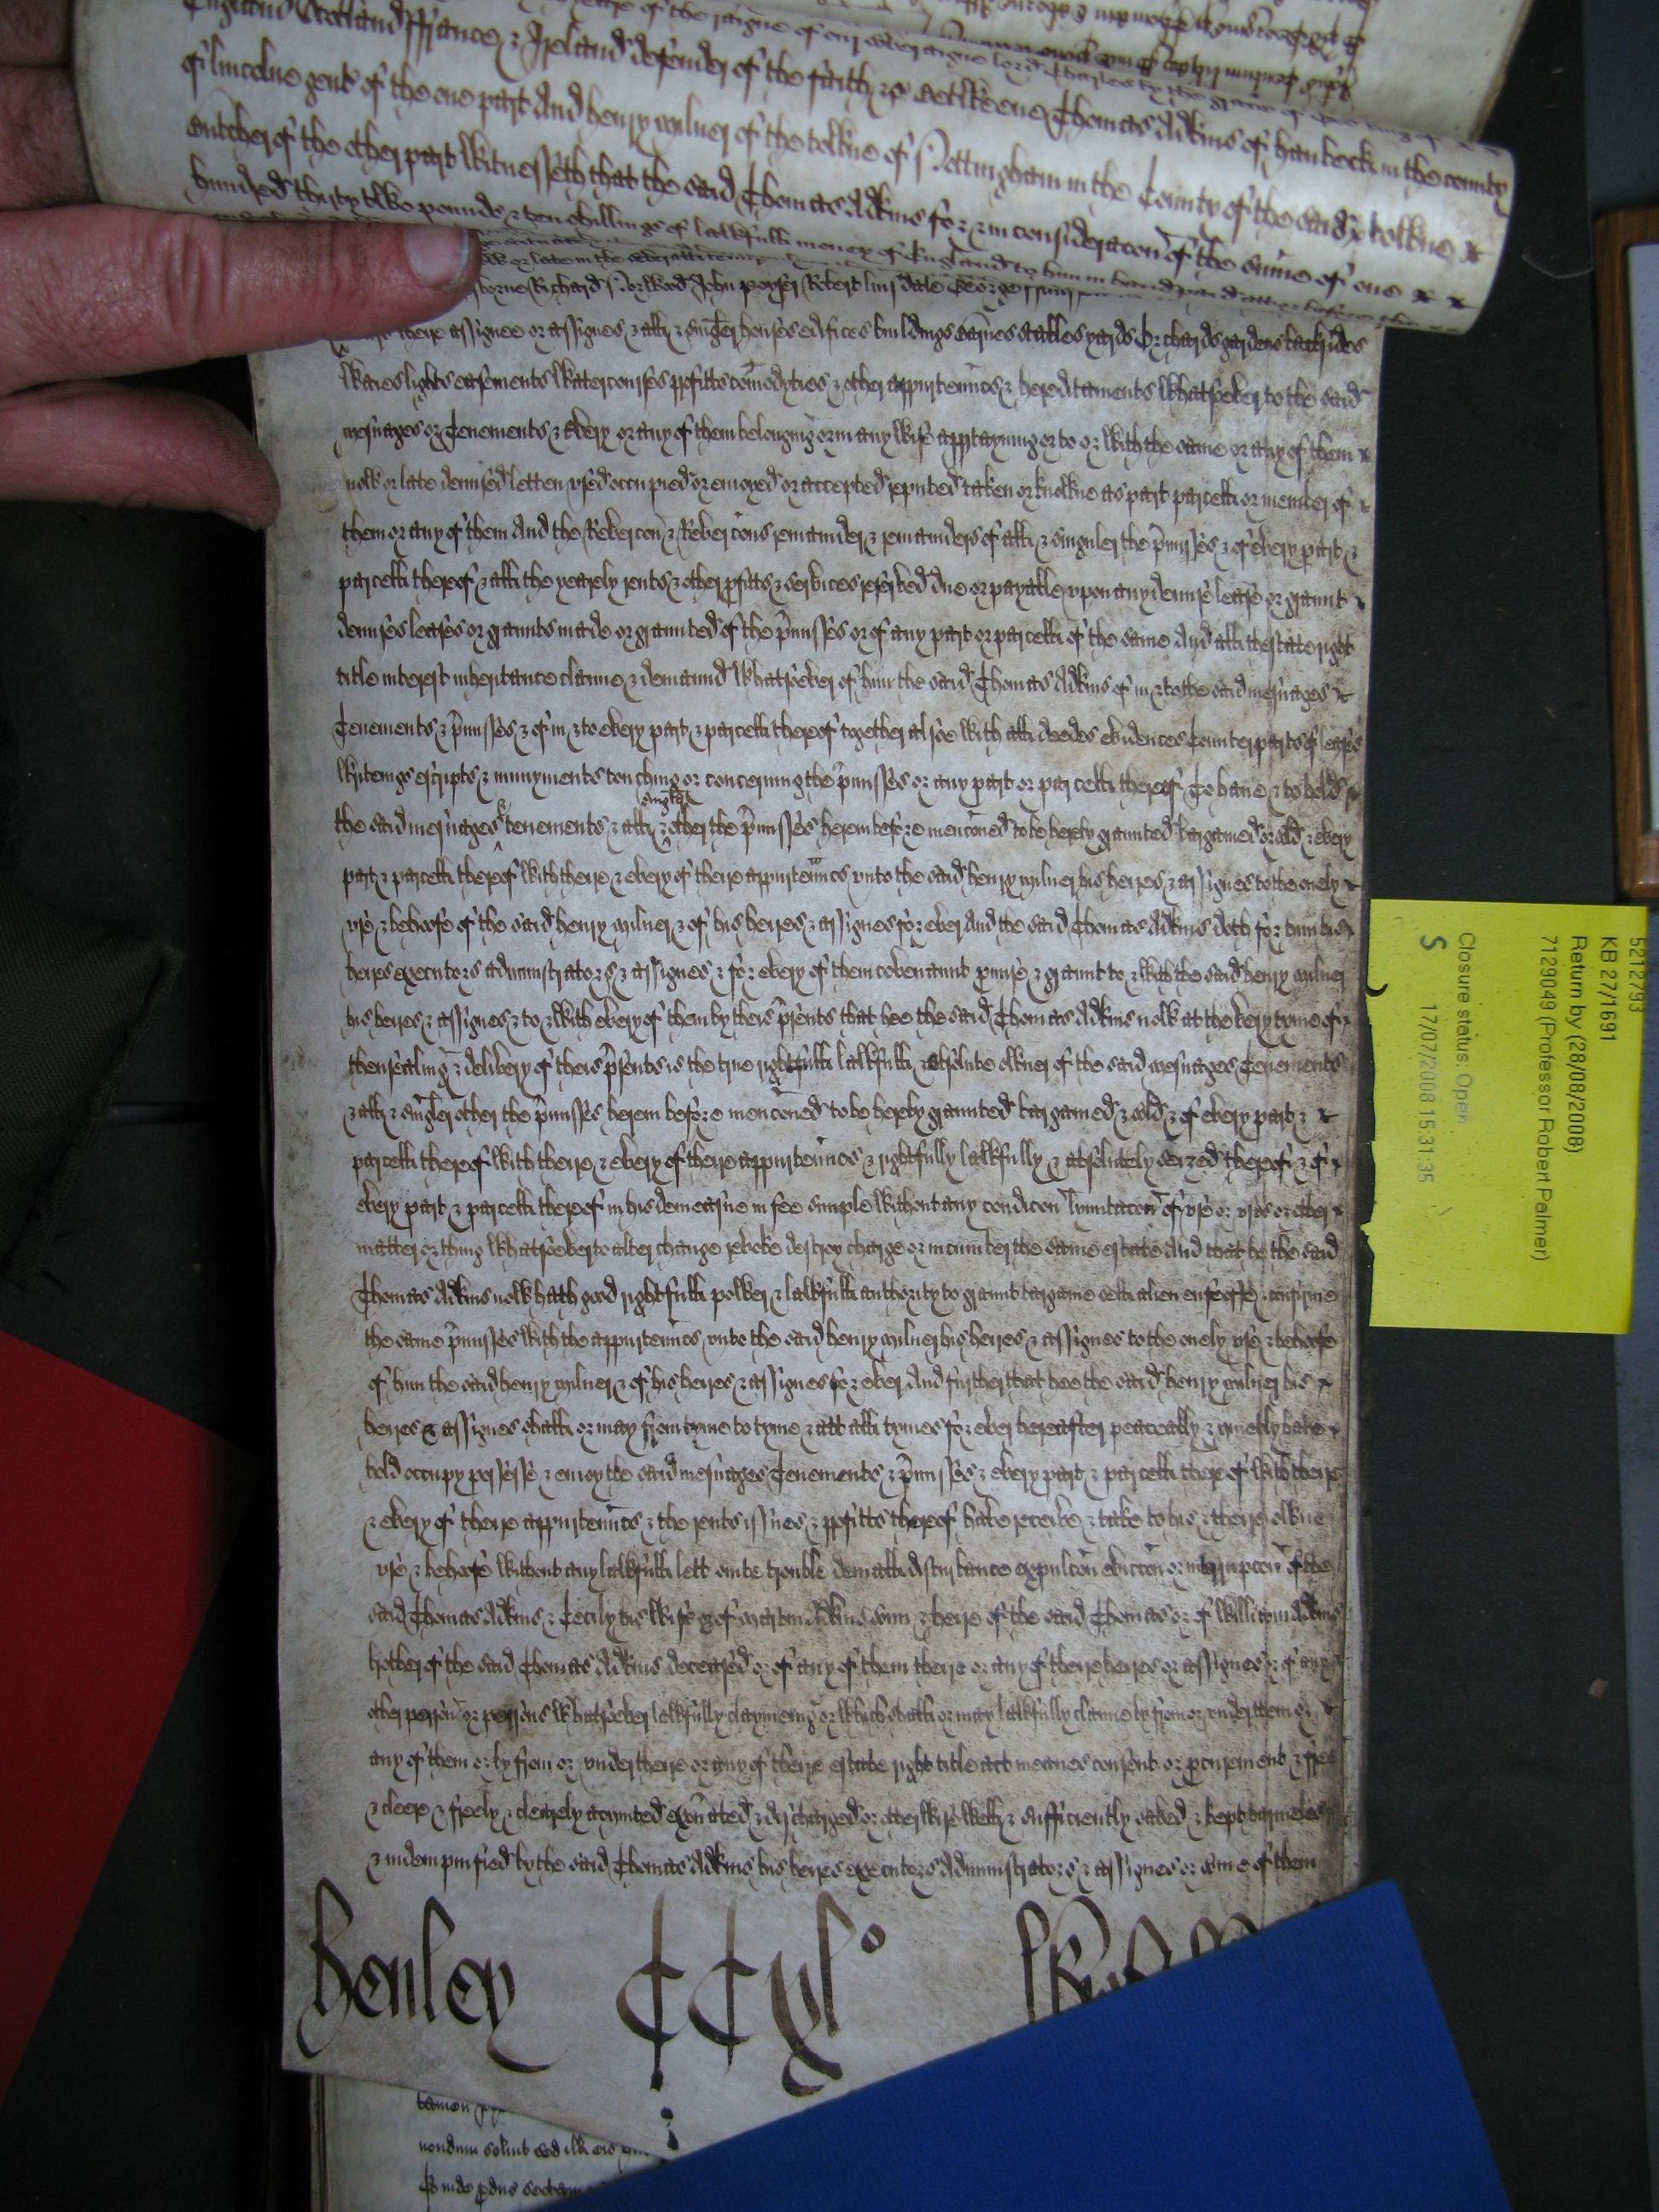 England Scotland ffrance & Ireland defender of the faith &c Betweene Thomas Adkins of hanbeck in the county
of lincolne gent of the one part And henry milner of the towne of Nottingham in the County of the said towne x
butcher of the other part Witnesseth that the said Thomas Adkins for & in consideracon of the sume of one x x
hundred thirty two pounds & ten shillings of lawfull money of England to him in hand paid att or before the
Richard Norwood John poyser Robert linsdale George
theire assignee or assignes & all & singler houses edifices buildings barnes stables yards Orchards gardens backsides
Wares lights easements Watercourses proffitts comodyties & other appurtennces & hereditaments Whatsoever to the said
mesuages or Tenements & every or any of them belonging or in any wise apptayning or to or with the same or any of them x
now or late demised letten used occupied or enioyed or accepted reputed taken or knowne as part parcell or member of x
them or any of them And the Revercon & Revercons remainder & remainders of all & singuler the pmisses & of every part &
parcell thereof & all the yearely rents & other proffitts & services reserved due or payable upon any demise lease or graunt x
demises leases or graunts made or graunted of the pmisses or of any part or parcell of the same And all thestate right
title interest inheritance clayme & demaund Whatsoever of him the said Thomas Adkins of in & to the said mesuages x
Tenements & pmisses & of in & to every part & parcell thereof together alsoe with all deedes evidences Counterparts of leases
Writeings escripts & munyments touching or concerning the pmisses or any part or parcell thereof To have & to hold x
singler
the said mesuages tenements & all & other the pmisses herein before menconed to be hereby graunted bargained or sold & every
part & parcell thereof with theire & every of theire appurtennces unto the said henry milner his heires & assignes to the onely x
use & behoofe of the said henry milner & of his heires & assignes for ever And the said Thomas Adkins doth for him his
heires executors administrators & assignes & for every of them covenannt pmise & graunt to & with the said henry milner
his heires & assignes & to & with every of them by theis psents that hee the said Thomas Adkins now at the very tyme of x
thensealing & delivery of theis psents is the true rightfull lawfull & absolute owner of the said mesuages Tenements
& all & singler other the pmisses herein before menconed to be hereby graunted bargained & sold & of every part & x
parcell thereof with theire & every of theire appurtennces & rightfully lawfully & absolutely seized thereof & of x
every part & parcell thereof in his demeasne in fee simple without any condicon lymitacon of use or uses or other x
matter or thing Whatsoever to alter change revoke destroy charge or incumber the same estate And that he the said
Thomas Adkins now hath good rightfull power & lawfull authority to graunt bargaine sell alien enfeoffe & confirme
the same pmisses with the appurtennces unto the said henry milner his heires & assignes to the onely use & behoofe
of him the said henry milner & of his heires & assignes for ever And further that hee the said henry milner his x
heires & assignes shall or may from tyme to tyme & att all tymes for ever hereafter peaceably & quietly have x
hold occupy possesse & enioy the said mesuages Tenements & pmisses & every part & parcell thereof with theire
& every of theire appurtennces & the rents issues & proffitts thereof have receive & take to his & theire owne
use & behoofe without any lawfull lett suite trouble deniall disturbance expulcon eviccon or interrupcon of the
said Thomas Adkins & Cecily his wife & of Adkins sonn & heire of the said Thomas or of William Adkins
brother of the said Thomas Adkins deceased or of any of them theire or any of theire heires or assignes or of any
other person or persons Whatsoever lawfully clayming or which shall or may lawfully clayme by from or under them or x
any of them or by from or under theire or any of theire estate right title act meanes consent or procurement & free
& cleere & freely & clearely acquited exonated & discharged or otherwise well & sufficiently saved & kept harmeles
& indempnified by the said Thomas Adkins his heires executors Administrators & assignes or some of them
Henley
tamen
nondum solvit sed ill ei
5212793
KB 27/1691
Return by (28/08/2008)
7129049 (Professor Robert Palmer)
Closure status: Open
S 17/07/2008 15:31:35